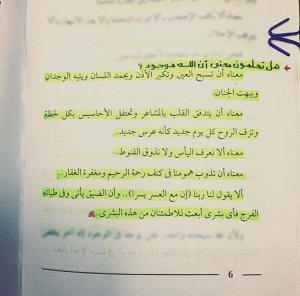 هل تعلمون معنى أن الله موجود ؟
معناه أن تسبح العين وتكبر الأذن ويحمد اللسان ويتيه الوجدان
ويبهت الجنان.
معناه أن يتدفق القلب بالمشاعر وتحتفل الأحاسيس بكل لحظة
وتزف الروح كل يوم جديد كأنه عرس جديد.
معناه ألا نعرف اليأس ولا نذوق القنوط.
معناه أن تذوب همومنا في كنف رحمة الرحيم ومغفرة الغفار.
ألا يقول لنا ربنا (إن مع العسر يسرا).. وأن الضيق يأتي وفى طياته
الفرج فأى بشرى أبعث للاطمئنان من هذه البشرى.
6